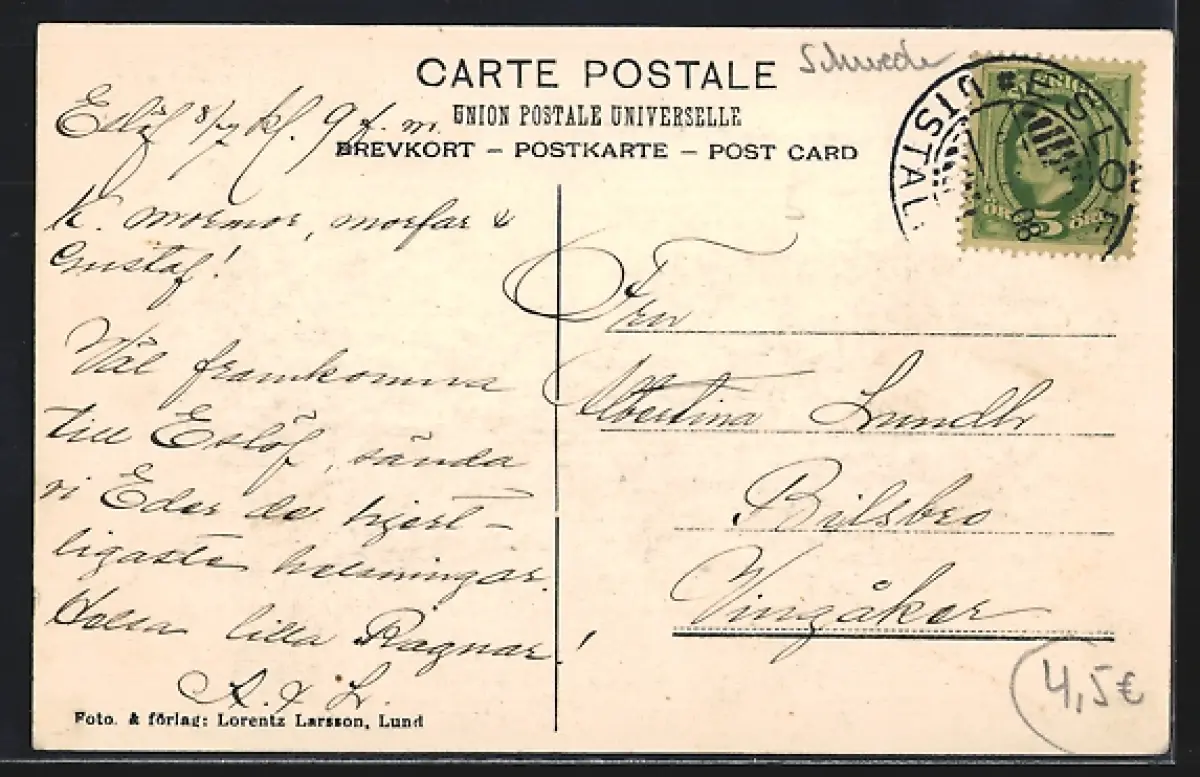 CARTE POSTALE
UNION POSTALE UNIVERSELLE
BREVKORT – POSTKARTE – POST CARD
Schwede
ESLÖF
UTSTÄLL
08
SVERIGE
ÖRE 5 ÖRE
Eslöf 8/7 kl. 9 f. m.
K. mormor, morfar &
Gustaf!
Väl framkomna
till Eslöf, sända
vi Eder de hjert-
ligaste helsningar.
Helsa lilla Ragnar!
A. & L.
Foto. & förlag: Lorentz Larsson, Lund
Fru
Albertina Lundh
Bilsbro
Vingåker
4,5 €